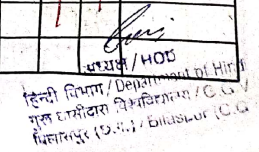 अध्यक्ष / HOD
हिन्दी विभाग / Department of Hindi
गुरु घासीदास विश्वविद्यालय / G G V
बिलासपुर (छ.ग.) / Bilaspur (C.G